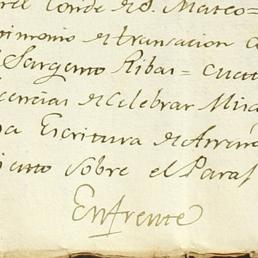 el Conde de S. Mateo =
trimonio de transacion
Sargento Ribas = cua
cencias de Celebrar Mis
a Escritura de Arren
sobre el Paraf
Enfrente